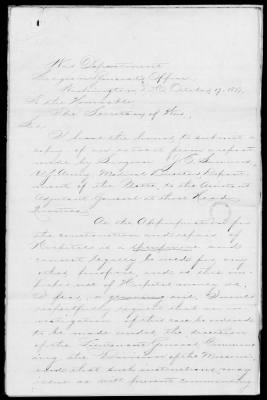 War Department
Surgeon General's Office
Washington, D.C. October 17, 18
To the Honorable
The Secretary of War,
Sir:
I have the honor to submit a
copy of an extract from a report
made by Surgeon J. Simpson
U.S. Army Medical Director Depart-
ment of the Platte, to the Assistant
Adjutant General at those Head-
quarters.
As the Appropriation for
the construction and repair of
Hospitals is a specific one and
cannot legally be used for any
other purpose and as this
use of Hospital money is,
I fear, a growing evil, I would
respectfully request that an in-
vestigation of this case be ordered
to be made under the direction
of the Lieutenant General Command-
ing the Division of the Missouri
and that such instructions may
issue as will prevent commanding